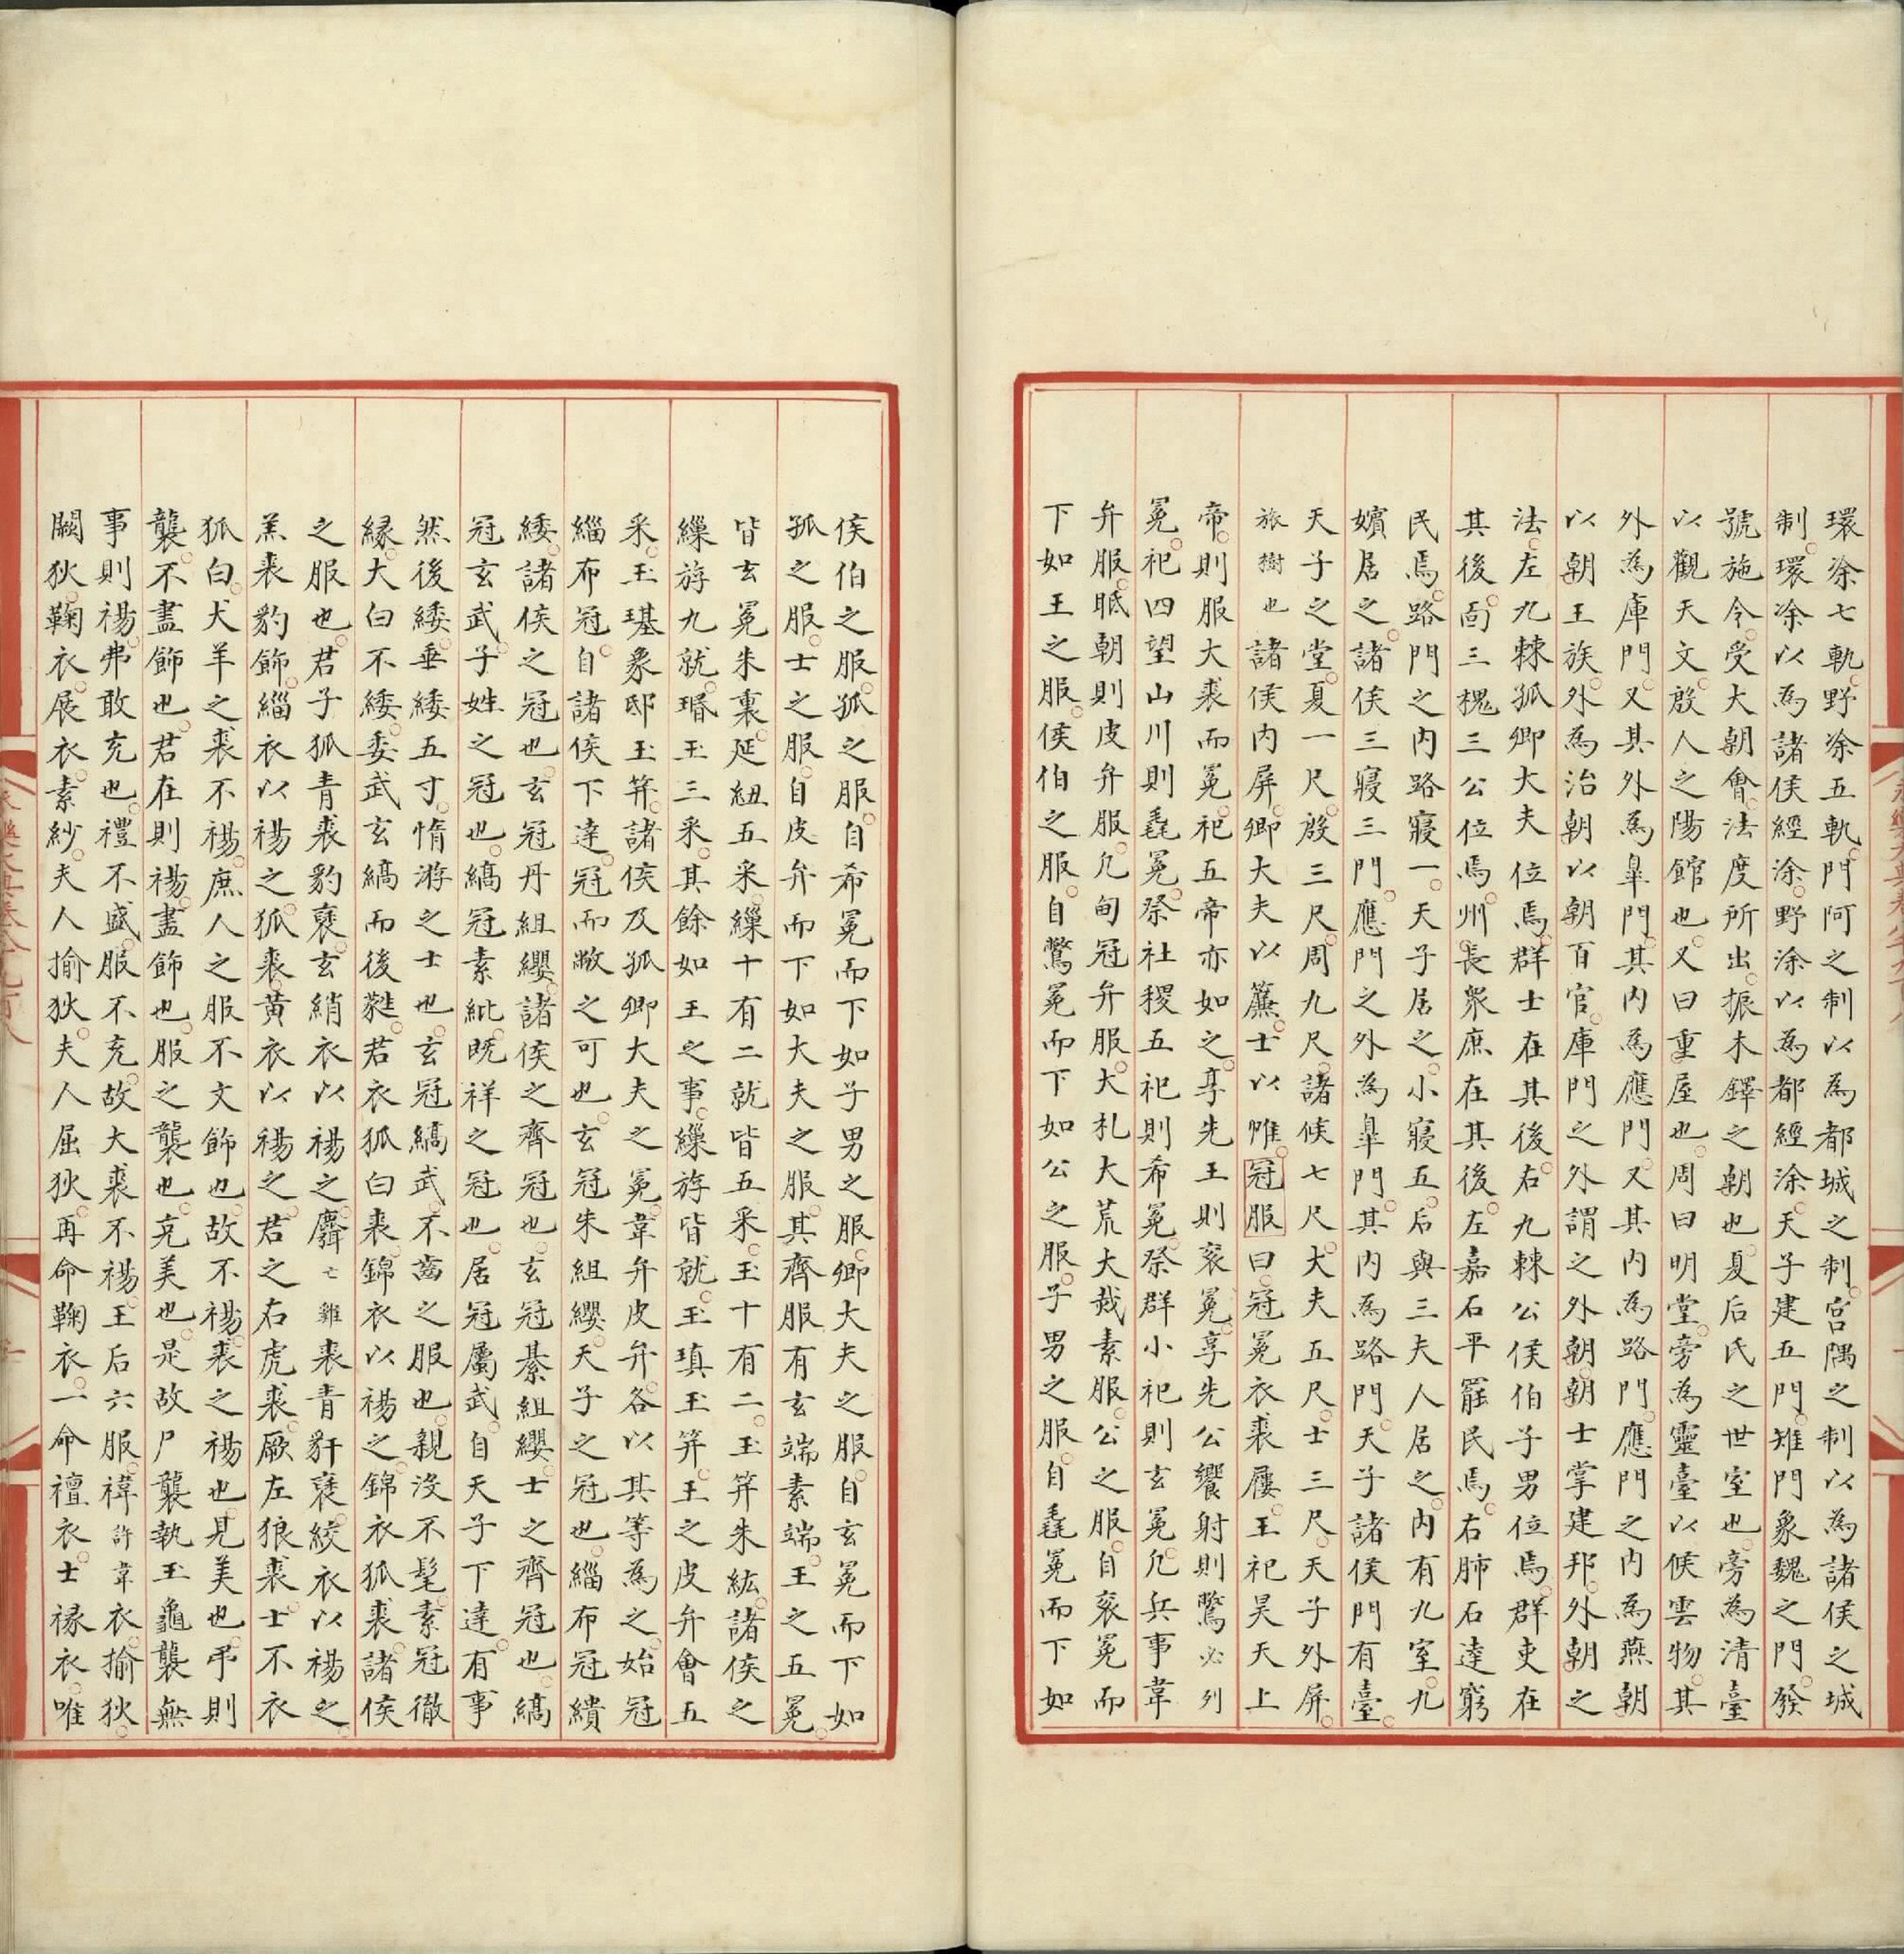 環涂七軌野涂五軌門阿之制以為都城之制宮隅之制以為諸侯之城
制環涂以為諸侯經涂野涂以為都經涂天子建五門雉門象魏之門發
號施令受大朝會法度所出振木鐸之朝也夏后氏之世室也旁為清臺
以觀天文殷人之陽館也又曰重屋也周曰明堂旁為靈臺以候雲物其
外為庫門又其外為臯門其內為應門又其內為路門應門之內為燕朝
以朝王族外為治朝以朝百官庫門之外謂之外朝朝士掌建邦外朝之
法左九棘孤卿大夫位焉群士在其後右九棘公侯伯子男位焉群吏在
其後面三槐三公位焉州長衆庶在其後左嘉石平罷民焉右肺石達窮
民焉路門之內路寢一天子居之小寢五后與三夫人居之內有九室九
嬪居之諸侯三寢三門應門之外為臯門其內為路門天子諸侯門有臺
天子之堂夏一尺殷三尺周九尺諸候七尺大夫五尺士三尺天子外屏
旅樹也諸侯內屏卿大夫以簾士以帷冠服曰冠冕衣裘屨王祀昊天上
帝則服大裘而冕祀五帝亦如之享先王則衮冕享先公饗射則鷩必列
冕祀四望山川則毳冕祭社稷五祀則希冕祭群小祀則玄冕凡兵事韋
弁服眡朝則皮弁服凡甸冠弁服大札大荒大烖素服公之服自衮冕而
下如王之服侯伯之服自鷩冕而下如公之服子男之服自毳冕而下如
侯伯之服孤之服自希冕而下如子男之服卿大夫之服自玄冕而下如
孤之服士之服自皮弁而下如大夫之服其齊服有玄端素端王之五冕
皆玄冕朱裏延紐五采繅十有二就皆五采玉十有二玉筓朱紘諸侯之
繅斿九就瑉玉三采其餘如王之事繅斿皆就玉瑱玉筓王之皮弁會五
采玉璂象邸玉筓諸侯及孤卿大夫之冕韋弁皮弁各以其等為之始冠
緇布冠自諸侯下達冠而敝之可也玄冠朱組纓天子之冠也緇布冠繢
緌諸侯之冠也玄冠丹組纓諸侯之齊冠也玄冠綦組纓士之齊冠也縞
冠玄武子姓之冠也縞冠素紕既祥之冠也居冠屬武自天子下達有事
然後緌垂緌五寸惰游之士也玄冠縞武不齒之服也親沒不髦素冠徹
緣大白不緌委武玄縞而後蕤君衣狐白裘錦衣以裼之錦衣狐裘諸侯
之服也君子狐青裘豹褎玄綃衣以裼之麛裘青豻褎絞衣以裼之
羔裘豹飾緇衣以裼之狐裘黃衣以裼之君之右虎裘厥左狼裘士不衣
狐白犬羊之裘不裼庶人之服不文飾也故不裼裘之裼也見美也弔則
襲不盡飾也君在則裼盡飾也服之襲也充美也是故尸襲執玉龜襲無
事則裼弗敢充也禮不盛服不充故大裘不裼王后六服褘許韋衣揄狄
闕狄鞠衣展衣素紗夫人揄狄夫人屈狄再命鞠衣一命襢衣士褖衣唯